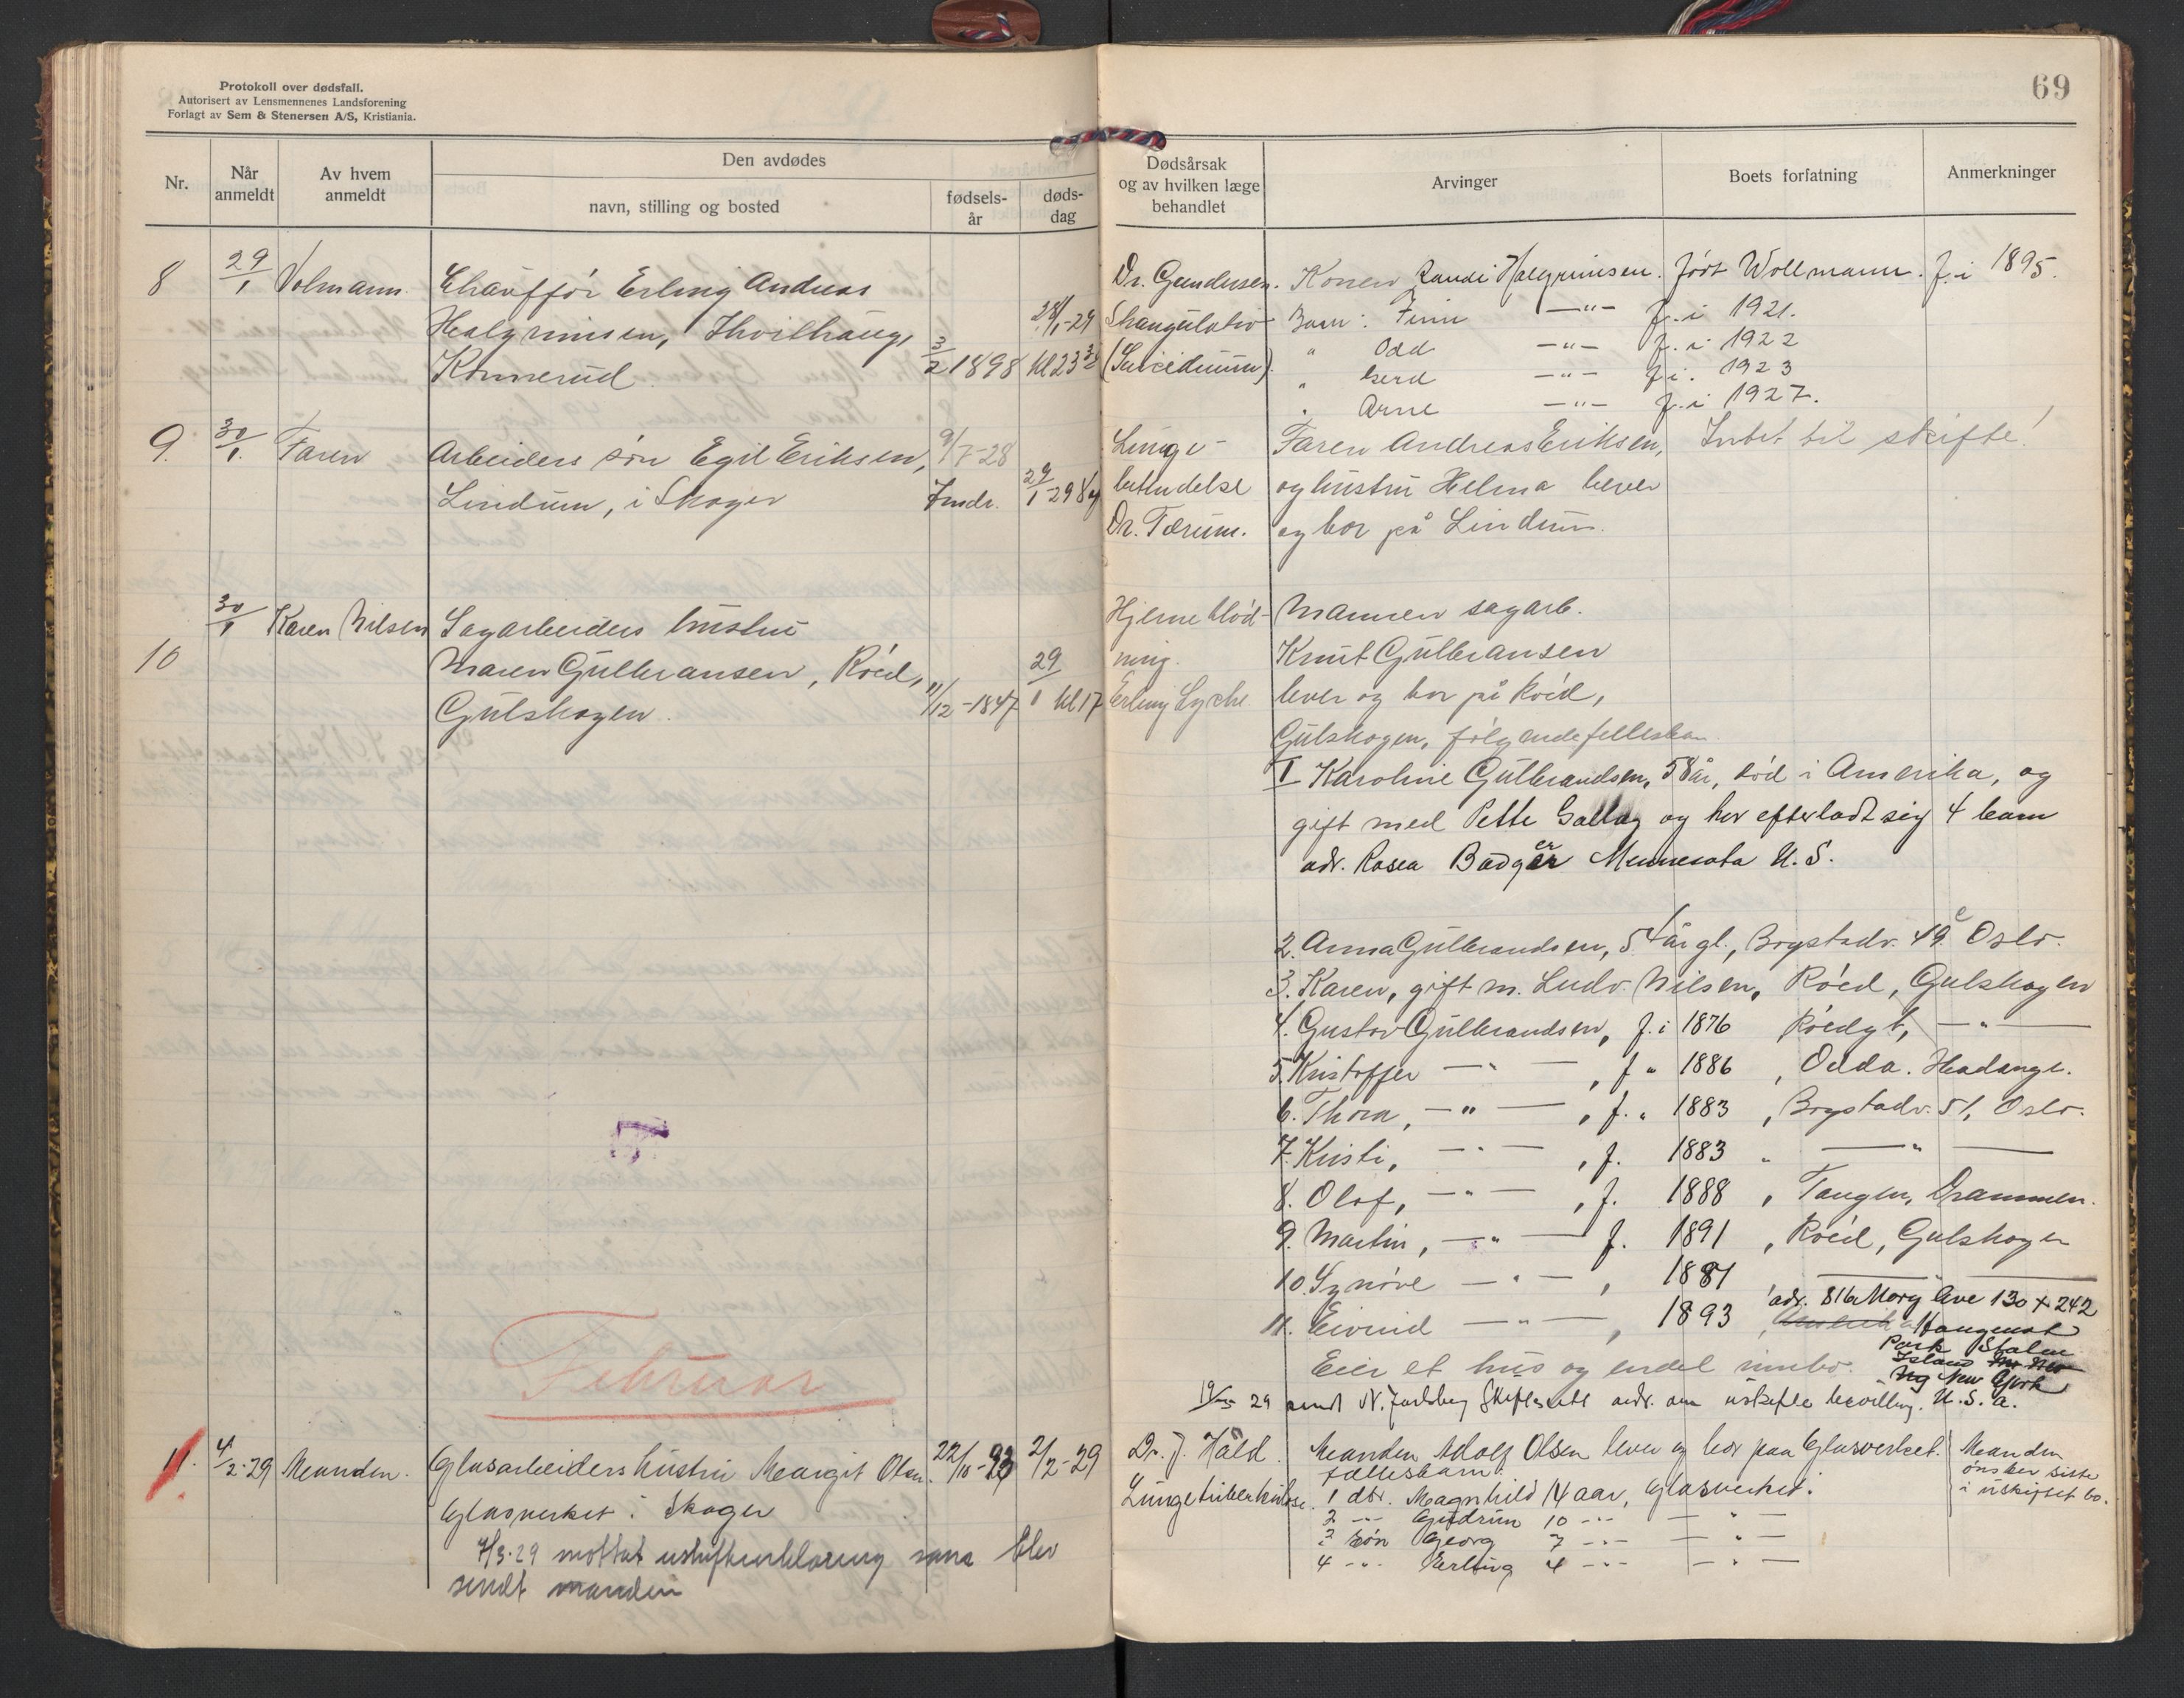 Protokoll over dødsfall.
Autorisert av Lensmennenes Landsforening
Forlagt av Sem & Stenersen A/S, Kristiania.
69
Nr.
Når anmeldt
Av hvem anmeldt
Den avdødes
navn, stilling og bosted
fødsels-år
døds-dag
Dødsårsak og av hvilken læge behandlet
Arvinger
Boets forfatning
Anmerkninger
8 29/1 Volmann. Chauffør Erling Andreas
Halgrimsen, Hvilhaug,
Konnerud.
3/2 1898
28/1-29
kl 23 30
Dr. Gundersen.
Strangulatio
(Suicidium).
Konen Randi Halgrimsen. født Wollmann. f. i 1895.
Barn: Finn —"— f. i 1921.
" Odd —"— f. i 1922
" Gerd —"— f. i. 1923
" Arne —"— f. i 1927.
9. 30/1. Faren Arbeiders søn Egil Eriksen,
Lindum, i Skoger
9/7-28
7 mdr.
29/1-29
Lunge-
betendelse
Dr. Tærum.
Faren Andreas Eriksen, Intet til skifte!
og hustru Helma lever
og bor på Lindum.
10 30/1 Karen Nilsen Sagarbeiders hustru
Maren Gulbransen, Røed,
Gulskogen.
11/12-1847
29/1 kl 17
Hjerneblød-
ning.
Erling Lyche
Mannen sagarb.
Knut Gulbransen
lever og bor på Røed,
Gulskogen, følgende fellesbarn
I Karoline Gulbrandsen, 58 år, død i Amerika, og
gift med Pette og har efterladt sig 4 barn
adr. Rosea Badger Mennesota U. S.
2. Anna Gulbrandsen, 54 år gl., Bogstadv. 49 c Oslo.
3. Karen, gift m. Ludv. Nilsen, Røed, Gulskogen
4. Gustav Gulbrandsen, f. i 1876 Røedgt, —"—
5. Kristoffer —"— , f " 1886 , Odda. Hardange.
6. Thora, —"— , f. " 1883 , Bogstadv. 51, Oslo.
7. Kristi, —"— , f. 1883 " —"—
8. Olaf, —"— , f. 1888 , Tangen, Drammen.
9. Martin, —"— f. 1891 , Røed, Gulskogen
10. Synøve —"— , 1881 —"—
11. Eivind —"— , 1893
adr. 816 Mory Ave 130 + 242
Park Staten
Island
New York
U. S. a.
Eier et hus og endel innbo.
19/3 29 sendt N. Jarlsberg Skifterett anm. om uskifte bevilling.
Februar
11. 4/2-29 Manden. Glasarbeiders hustru Margit Olsen.
Glasverket i Skoger
22/10-93
2/2-29
7/3-29 mottat uskifteerklæring som blev
sendt manden
Dr. J. Hald.
Lungetuberkulose.
Manden Adolf Olsen lever og bor paa Glasverket.
fællesbarn:
1 dtr. Magnhild 14 aar, Glasverket.
2 —"— Gudrun 10 —"— —"—
3 søn Georg 7 —"— —"—
4 —"— Erling 4 —"— —"—
Manden
ønsker sitte
i uskiftet bo.